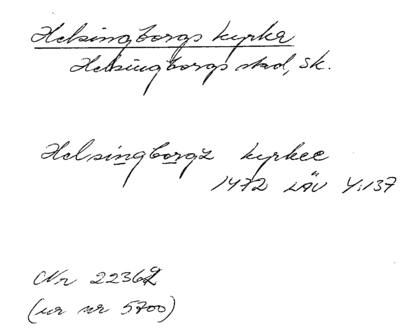 Helsingborgs kyrka
Helsingborgs stad, Sk.
Helsingborgz kyrkee
1472 LÄU 4:137
Nr 22362
(ur nr 5700)